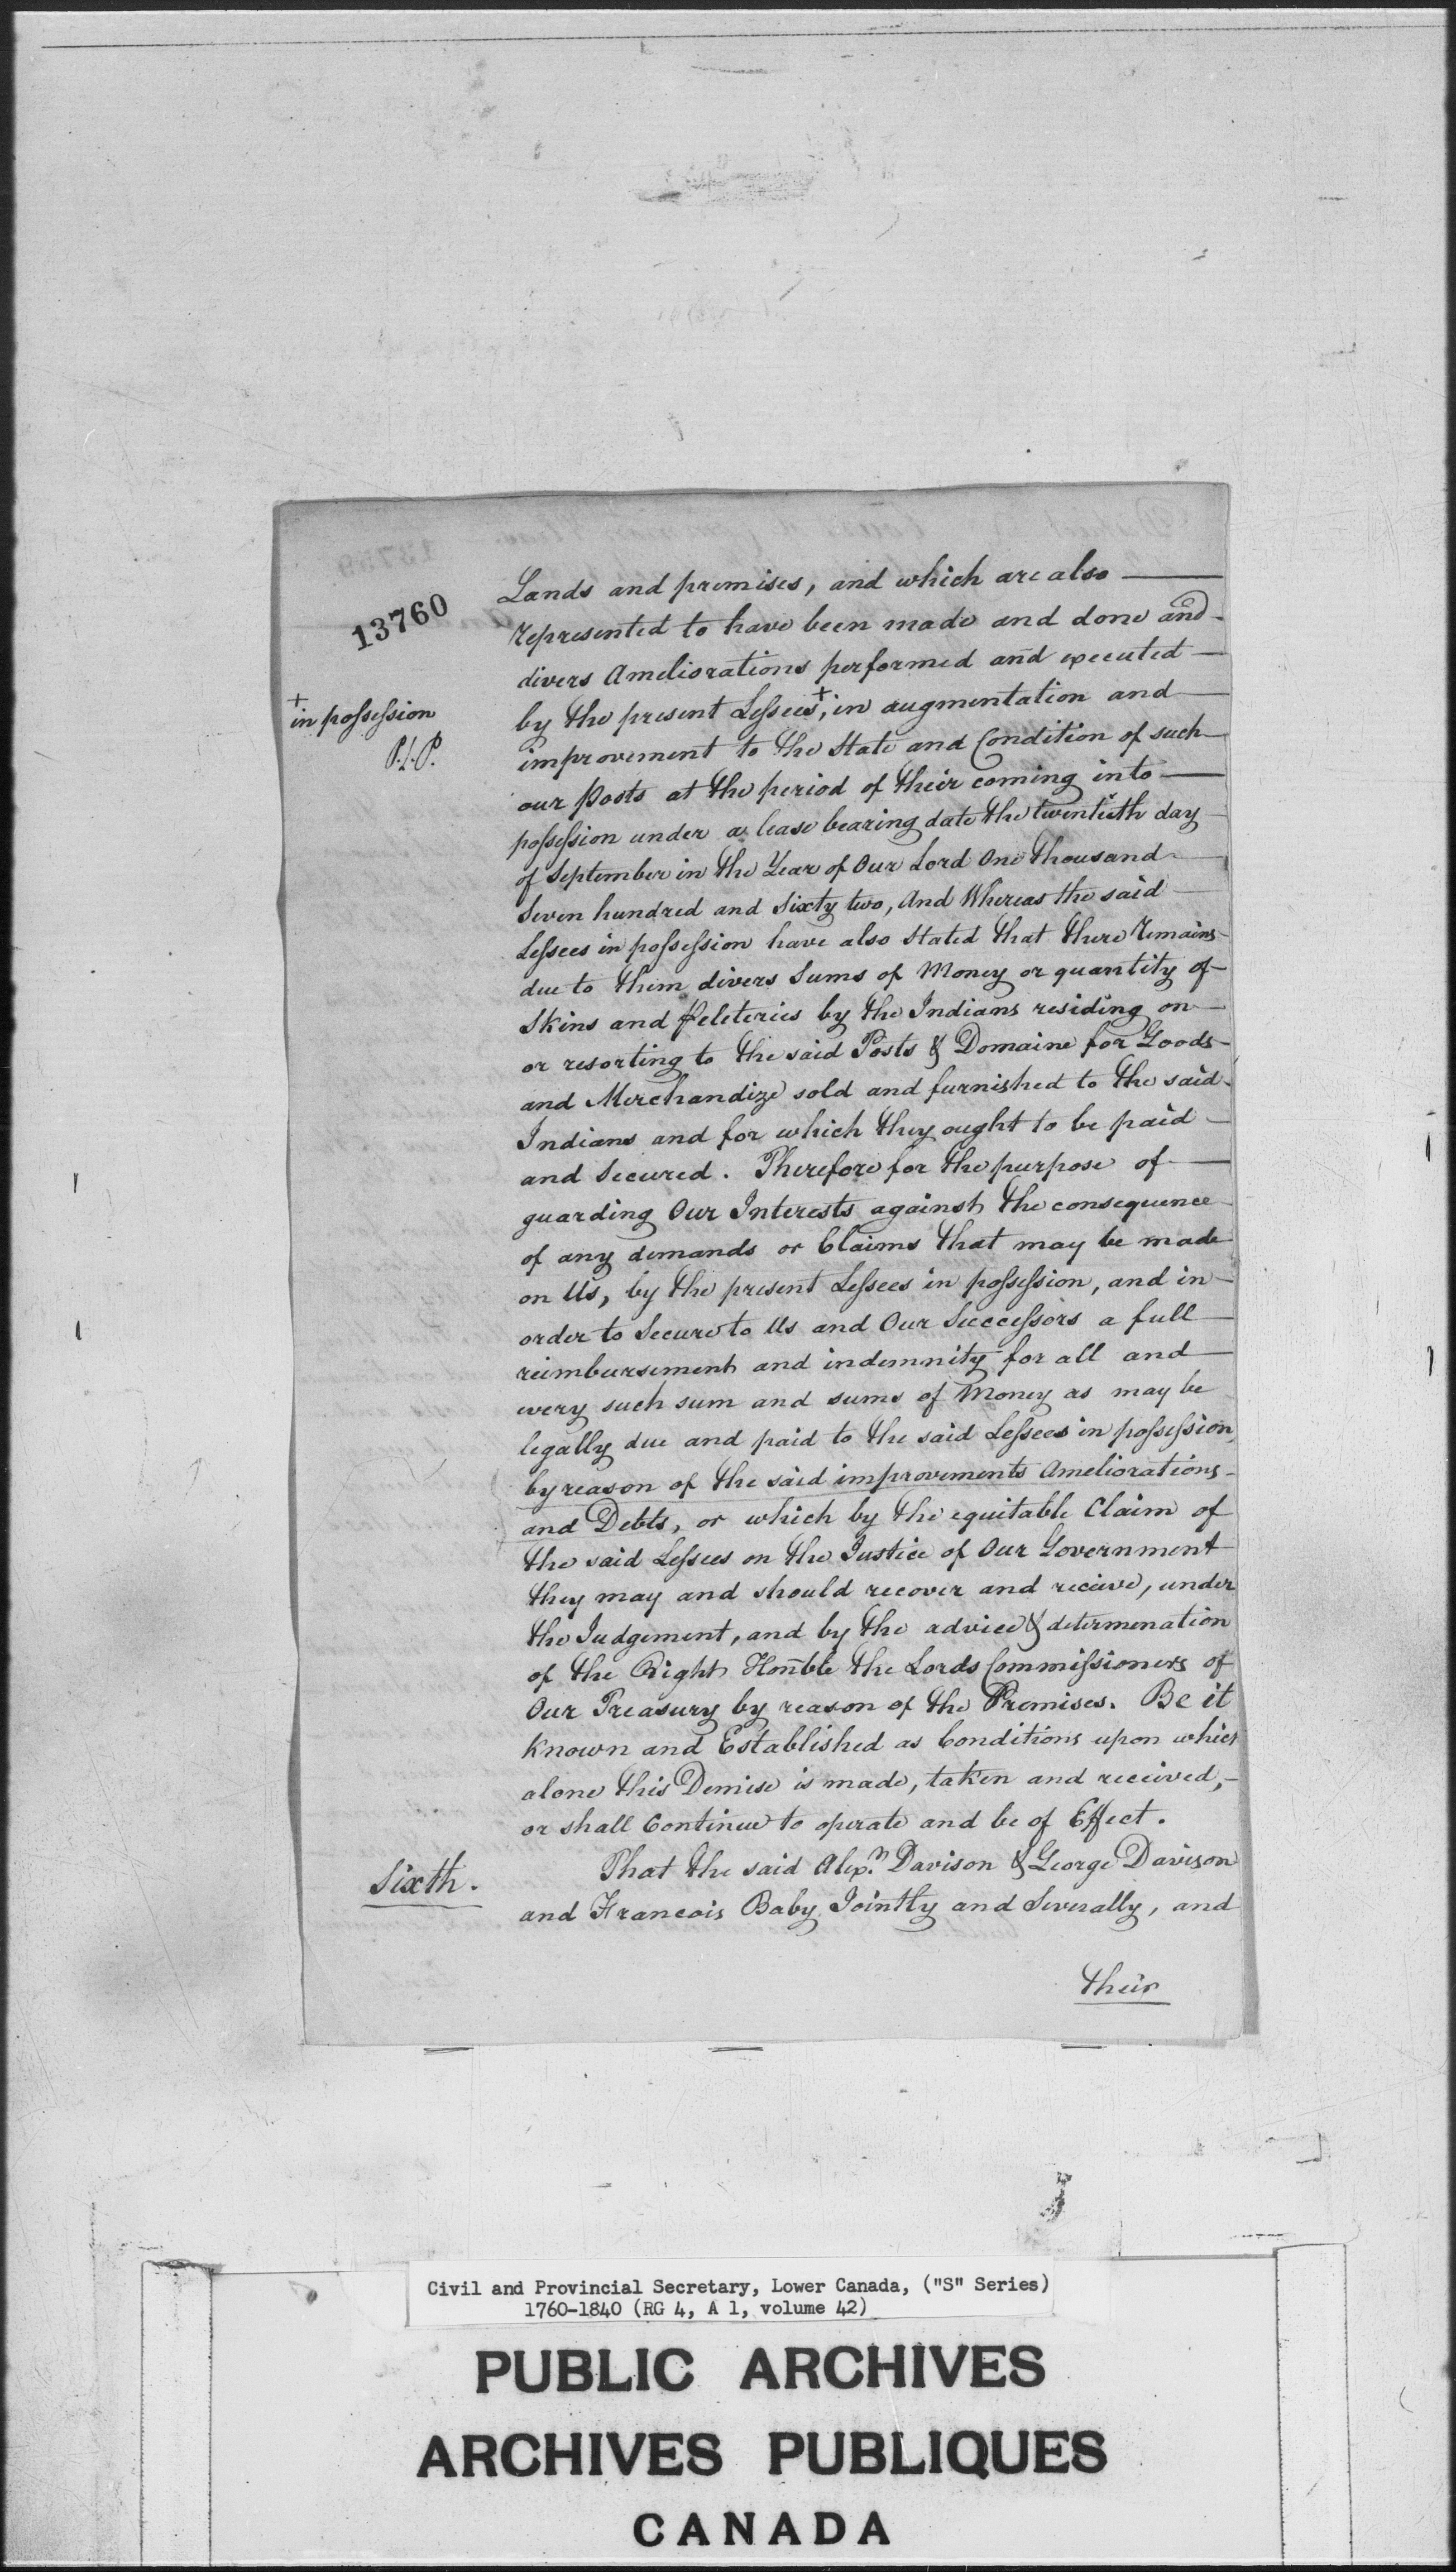 13760
Lands and premises, and which are also
represented to have been made and done and
divers Ameliorations performed and executed
+
in possession
P.L.P.
by the present Lessees+, in augmentation and
improvement to the State and Condition of such
our Posts at the period of their coming into
possession under a lease bearing date the twentieth day
of September in the Year of Our Lord One thousand
Seven hundred and Sixty two, And Whereas the said
Lessees in possession have also Stated that there Remains
due to them divers Sums of Money or quantity of
Skins and Peleteries by the Indians residing on
or resorting to the said Posts & Domaine for Goods
and Merchandize sold and furnished to the said
Indians and for which they ought to be paid
and Secured. Therefore for the purpose of
guarding Our Interests against the consequence
of any demands or Claims that may be made
on Us, by the present Lessees in possession, and in
order to Secure to Us and Our Successors a full
reimbursement and indemnity for all and
every such sum and sums of Money as may be
legally due and paid to the said Lessees in possession,
by reason of the said improvements Ameliorations
and Debts, or which by the equitable Claim of
the said Lessees on the Justice of Our Government
they may and should recover and recieve, under
the Judgement, and by the advice & determenation
of the Right Honble the Lords Commissioners of
Our Treasury by reason of the Premises. Be it
Known and Established as Conditions upon which
alone this Demise is made, taken and received,
or shall Continue to operate and be of Effect.
Sixth.
That the said Alexr. Davison & George Davison
and Francois Baby Jointly and Severally, and
their
Civil and Provincial Secretary, Lower Canada, ("S" Series)
1760-1840 (RG 4, A 1, volume 42)
PUBLIC ARCHIVES
ARCHIVES PUBLIQUES
CANADA